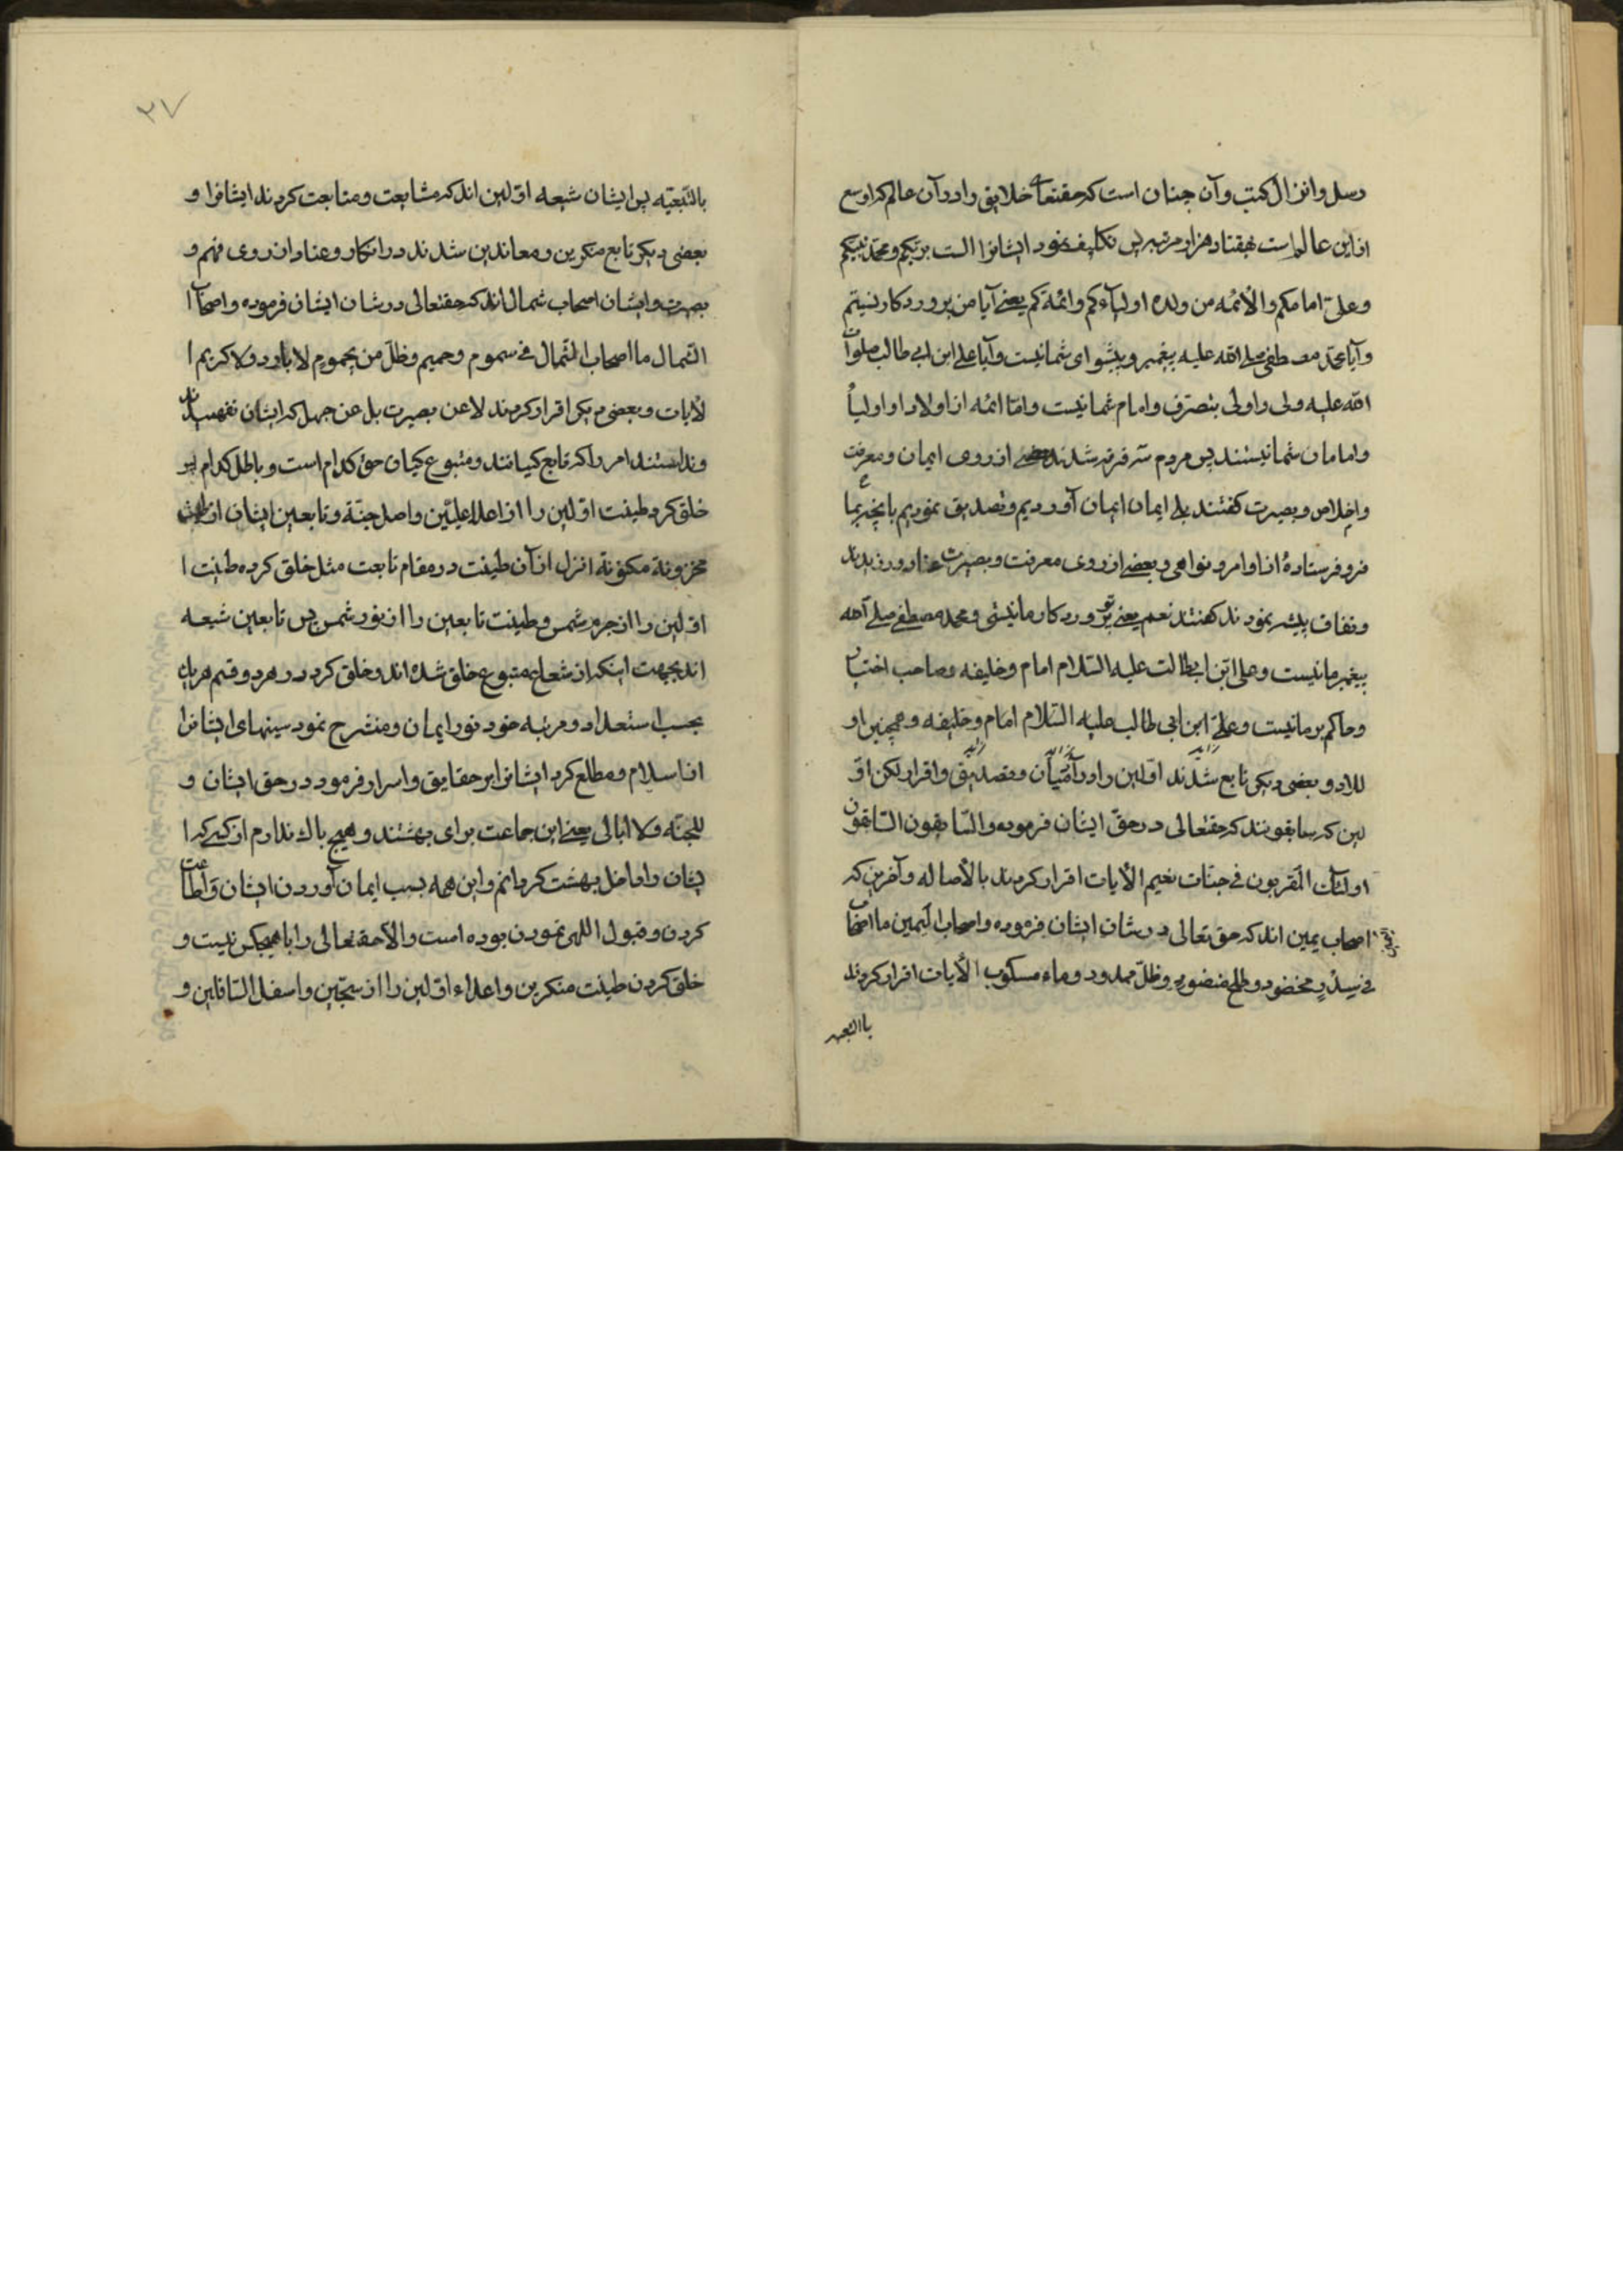 رسل وانزال کتب وآن چنان است که حقتعالی خلایق را در آن عالم که اوسع
از این عالم است بهفتاد هزار مرتبه پس تکلیف نمود ایشانرا الست بربّکم ومحمّد نبیّکم
وعلیّ امامکم والائمّه من ولده اولیآءکم وائمّة کم یعنی آیا من پروردکار نیستم
وآیا محمّد مصطفی صلی الله علیه پیغمبر وپیشوای شما نیست وآیا علی ابن ابی طالب صلوات
الله علیه ولی واولی بتصرّف وامام شما نیست وامّا ائمّه از اولاد او اولیاُ
وامامان شما نیستند پس مردم سه فرقه شدند بعضی از روی ایمان ومعرفت
واخلاص وبصیرت کفتند بلی ایمان ایمان آوردیم وتصدیق نمودیم بانچه بما
فرو فرستادهٔ از اوامر ونواهی وبعضی از روی معرفت وبصیرت عناد ورزیدند
ونفاق پیشه نمودند کفتند نعم یعنی تو پروردکار ما نیستی ومحمد مصطفی صلی الله
پیغمبر ما نیست وعلی ابن ابیطالب علیه السّلام امام وخلیفه وصاحب اختیار
وحاکم بر ما نیست وعلیّ ابن ابی طالب علیه السّلام امام وخلیفه وهمچنین او
للاد وبعضی دیکر تابع شدند اوّلین را در وتصدیق واقرار لکن اوّ
لین که سابقونند که حقتعالی در حقّ ایشان فرموده والسّابقون السّابقون
اولئک المقربون فی جنّات نعیم الآیات اقرار کردند بالأصاله وآخرین که
اصحاب یمین اند که حق تعالی در شان ایشان فرموده واصحاب الیمین ما اصحاب
فی سدرٍ مخضود وطلح منضودٍ وظلّ ممدود وماء مسکوب الأیات اقرار کردند
باالتبعیه
۲۷
بالتّبعیّه پس ایشان شیعه اوّلین اند که مشایعت ومتابعت کردند ایشانرا و
بعضی دیکر تابع منکرین ومعاندین شدند در انکار وعناد از روی فهم و
بصیرت وایشان اصحاب شمال اند که حقتعالی در شان ایشان فرموده واصحآب ا
الشّمال ما اصحاب الشّمال فی سموم وحمیم وظلّ من یحمومٍ لا بارد ولا کریم ا
لأیات وبعضی دیکر اقرار کردند لا عن بصیرت بل عن جهل که ایشان نفهمیدند
وندانستند امر را که تابع کیانند ومتبوع کیان حق کدام است وباطل کدام پس
خلق کرد طینت اوّلین را از اعلا علیّین واصل جنّة وتابعین ایشان از طینت
مخزونة مکنونة انزل از آن طینت در مقام تابعت مثل خلق کرده طینت ا
اوّلین را از جرم شمس وطینت تابعین را از نور شمس پس تابعین شیعه
اند بجهت اینکه از شعاع متبوع خلق شده اند وخلق کرد در هر دو قسم هر یک
بحسب استعداد ومرتبه خود نور ایمان ومنشرح نمود سینهای ایشانرا
از اسلام ومطلع کرد ایشانرا بر حقایق واسرار فرمود در حق ایشان و
للجنّه ولا ابالی یعنی این جماعت برای بهشتند وهیچ باک ندارم از کسی که ا
یشان را داخل بهشت کردانم واین همه بسبب ایمان آوردن ایشان وَاطاعت
کردن وقبول اللهی نمودن بوده است والّا حقتعالی را با هیچکس نیست و
خلق کردن طینت منکرین واعداء اوّلین را از سجّین واسفل السّافلین و